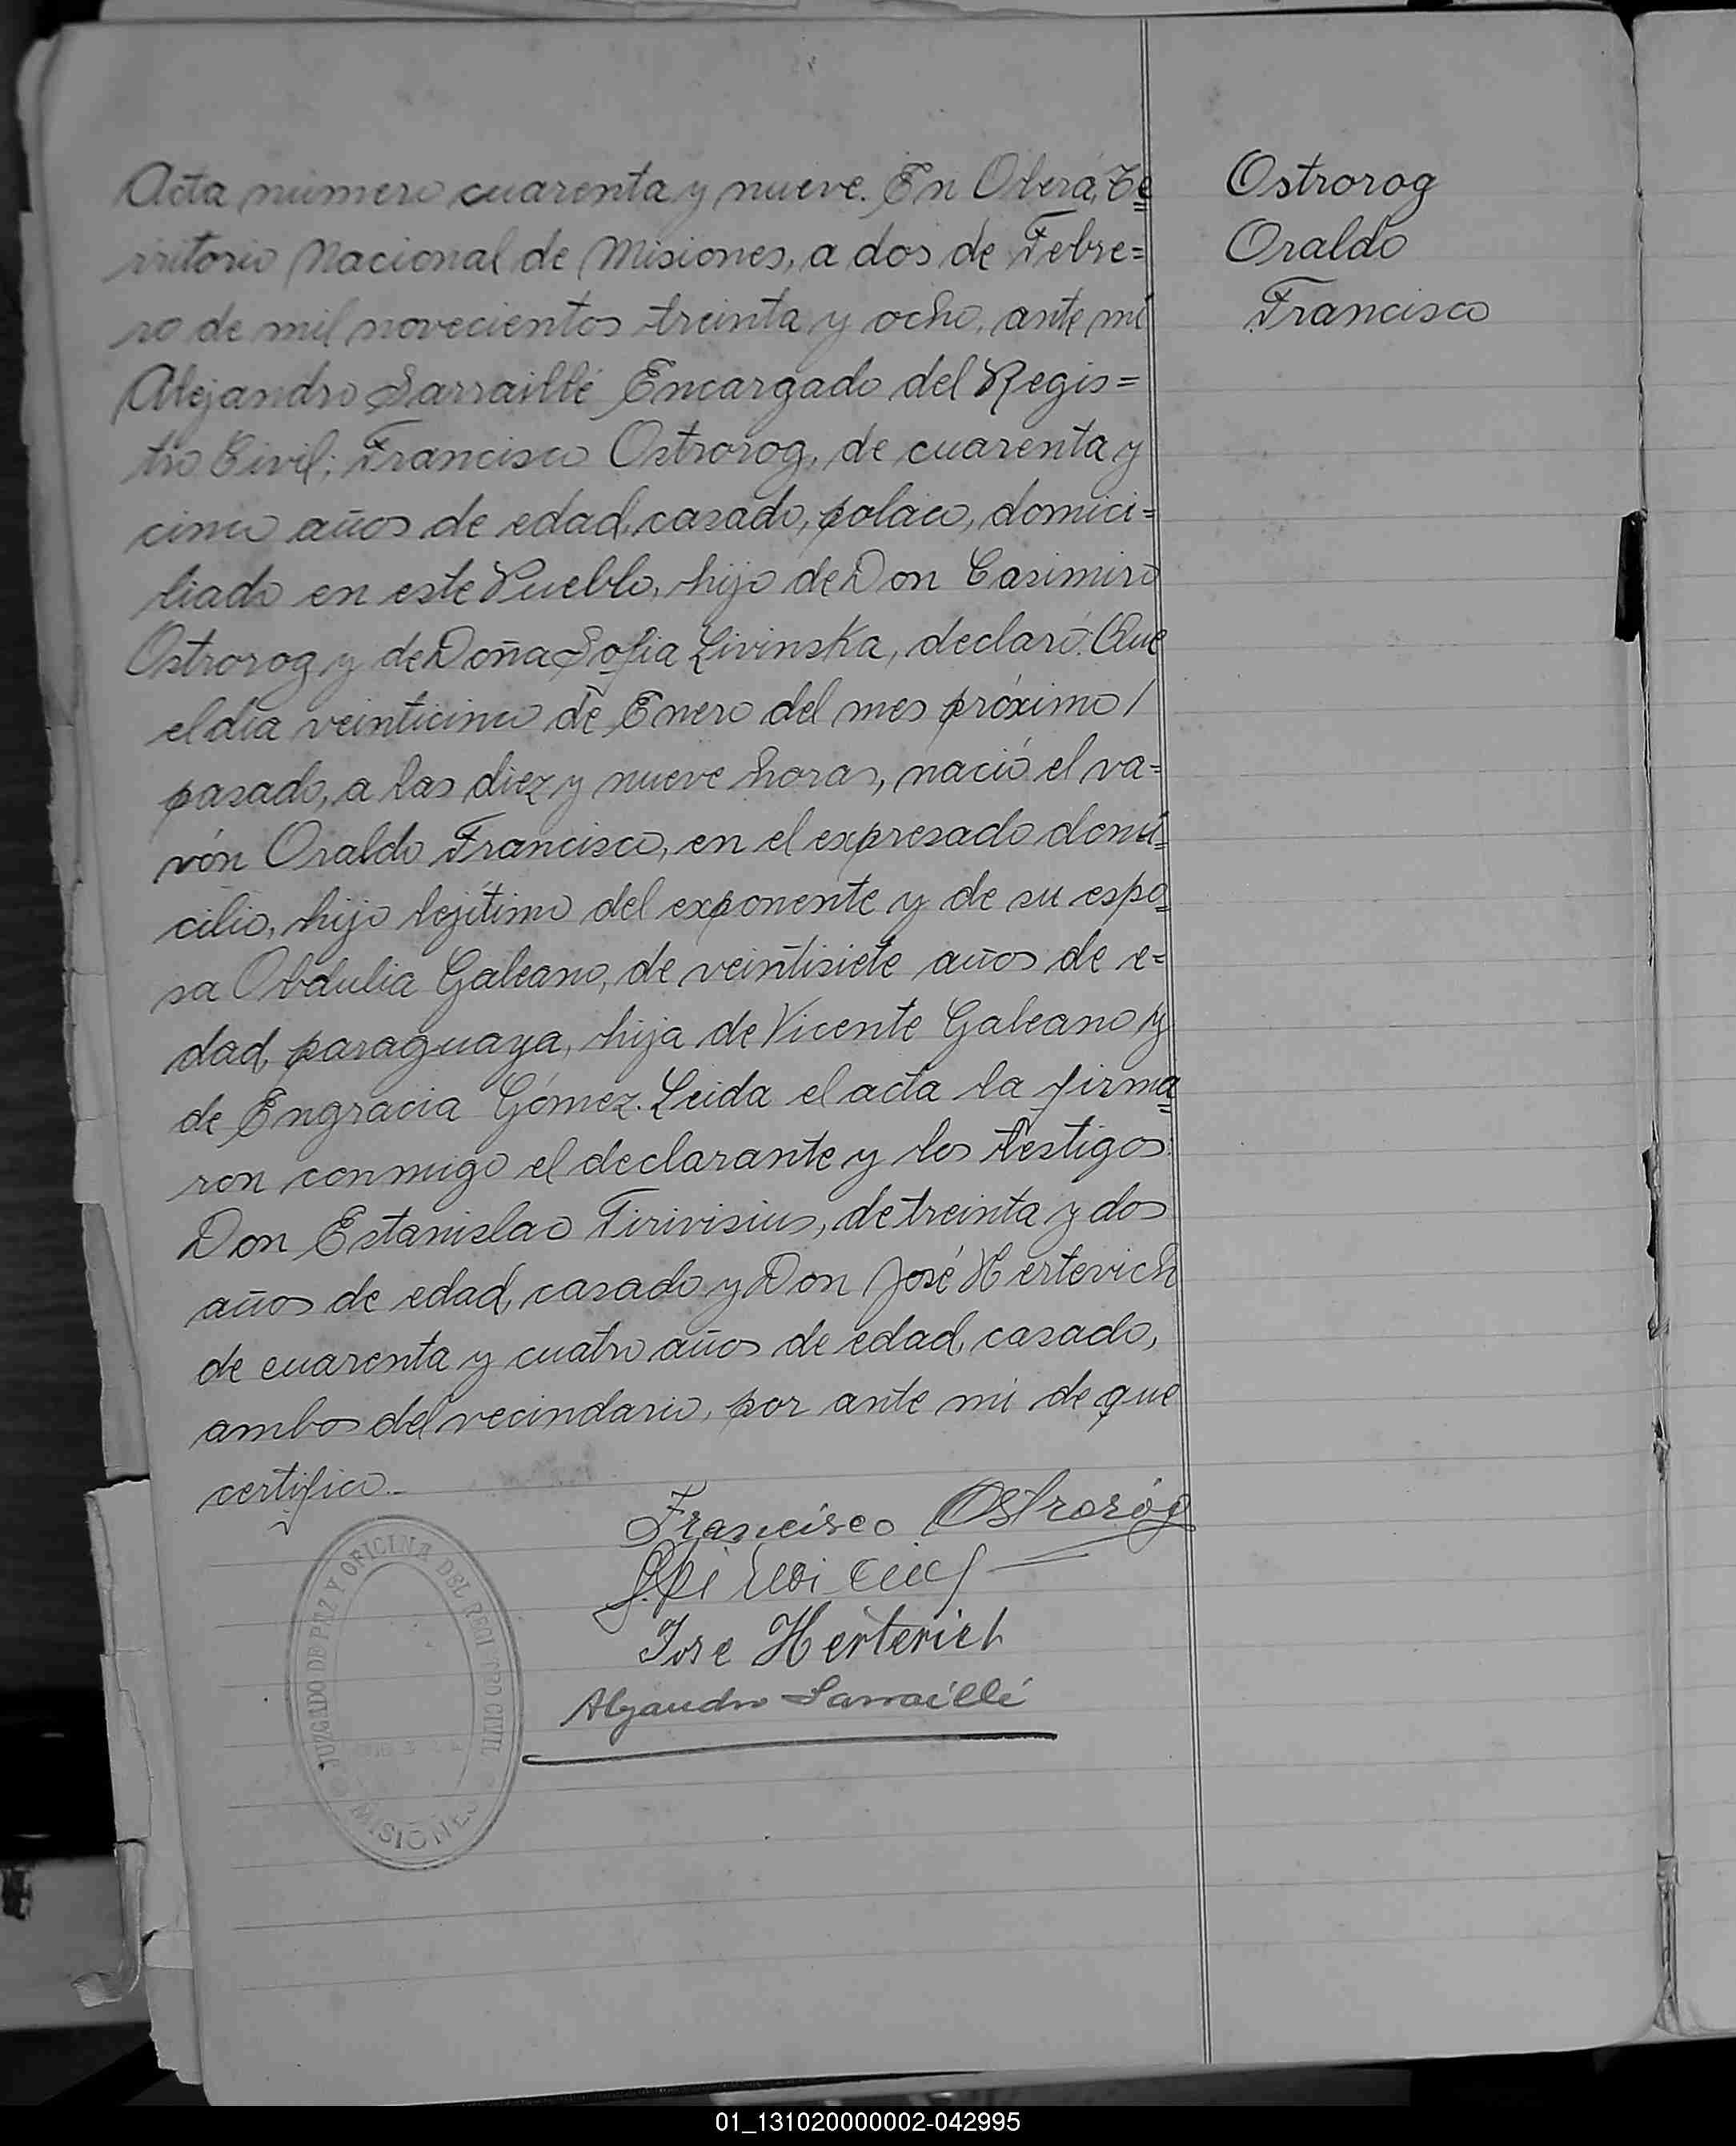 Acta número cuarenta y nueve. En Oberá, Te
rritorio Nacional de Misiones, a dos de Febre=
ro de mil novecientos treinta y ocho, ante mí
Alejandro Sarraillé Encargado del Regis=
tro Civil; Francisco Ostrorog, de cuarenta y
cinco años de edad, casado, polaco, domici=
liado en este Pueblo, hijo de Don Casimiro
Ostrorog y de Doña Sofia Livinska, declaró: Que
el día veinticinco de Enero del mes próximo /
pasado, a las diez y nueve horas, nació el va=
rón Oraldo Francisco, en el expresado domi=
cilio, hijo lejítimo del exponente y de su espo=
sa Obdulia Galeano, de veintisiete años de e=
dad, paraguaya, hija de Vicente Galeano y
de Engracia Gómez. Leida el acta la firma=
ron conmigo el declarante y los testigos
Don Estanislao Firivisius, de treinta y dos
años de edad, casado y Don José Hertevich
de cuarenta y cuatro años de edad, casado,
ambos del vecindario, por ante mi de que
certifico.-
Francisco Ostroróg
Jose Herterich
Alejandro Sarraillé
JUZGADO DE PAZ Y OFICINA DEL REGISTRO CIVIL
MISIONES
Ostrorog
Oraldo
Francisco
01_131020000002-042995